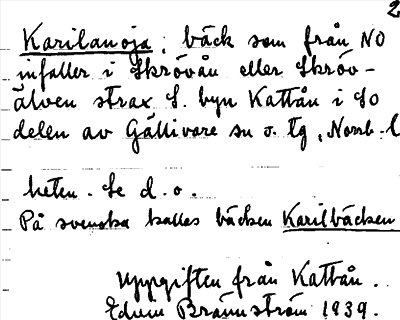 2
Karilanoja; bäck som från NO
infaller i Skrövån eller Skröv-
älven strax S. byn Kattån i SO
delen av Gällivare sn o. tg, Norrb. l
heten. Se d. o.
På svenska kallas bäcken Karilbäcken
Uppgiften från Kattån.
Edvin Brännström 1939.